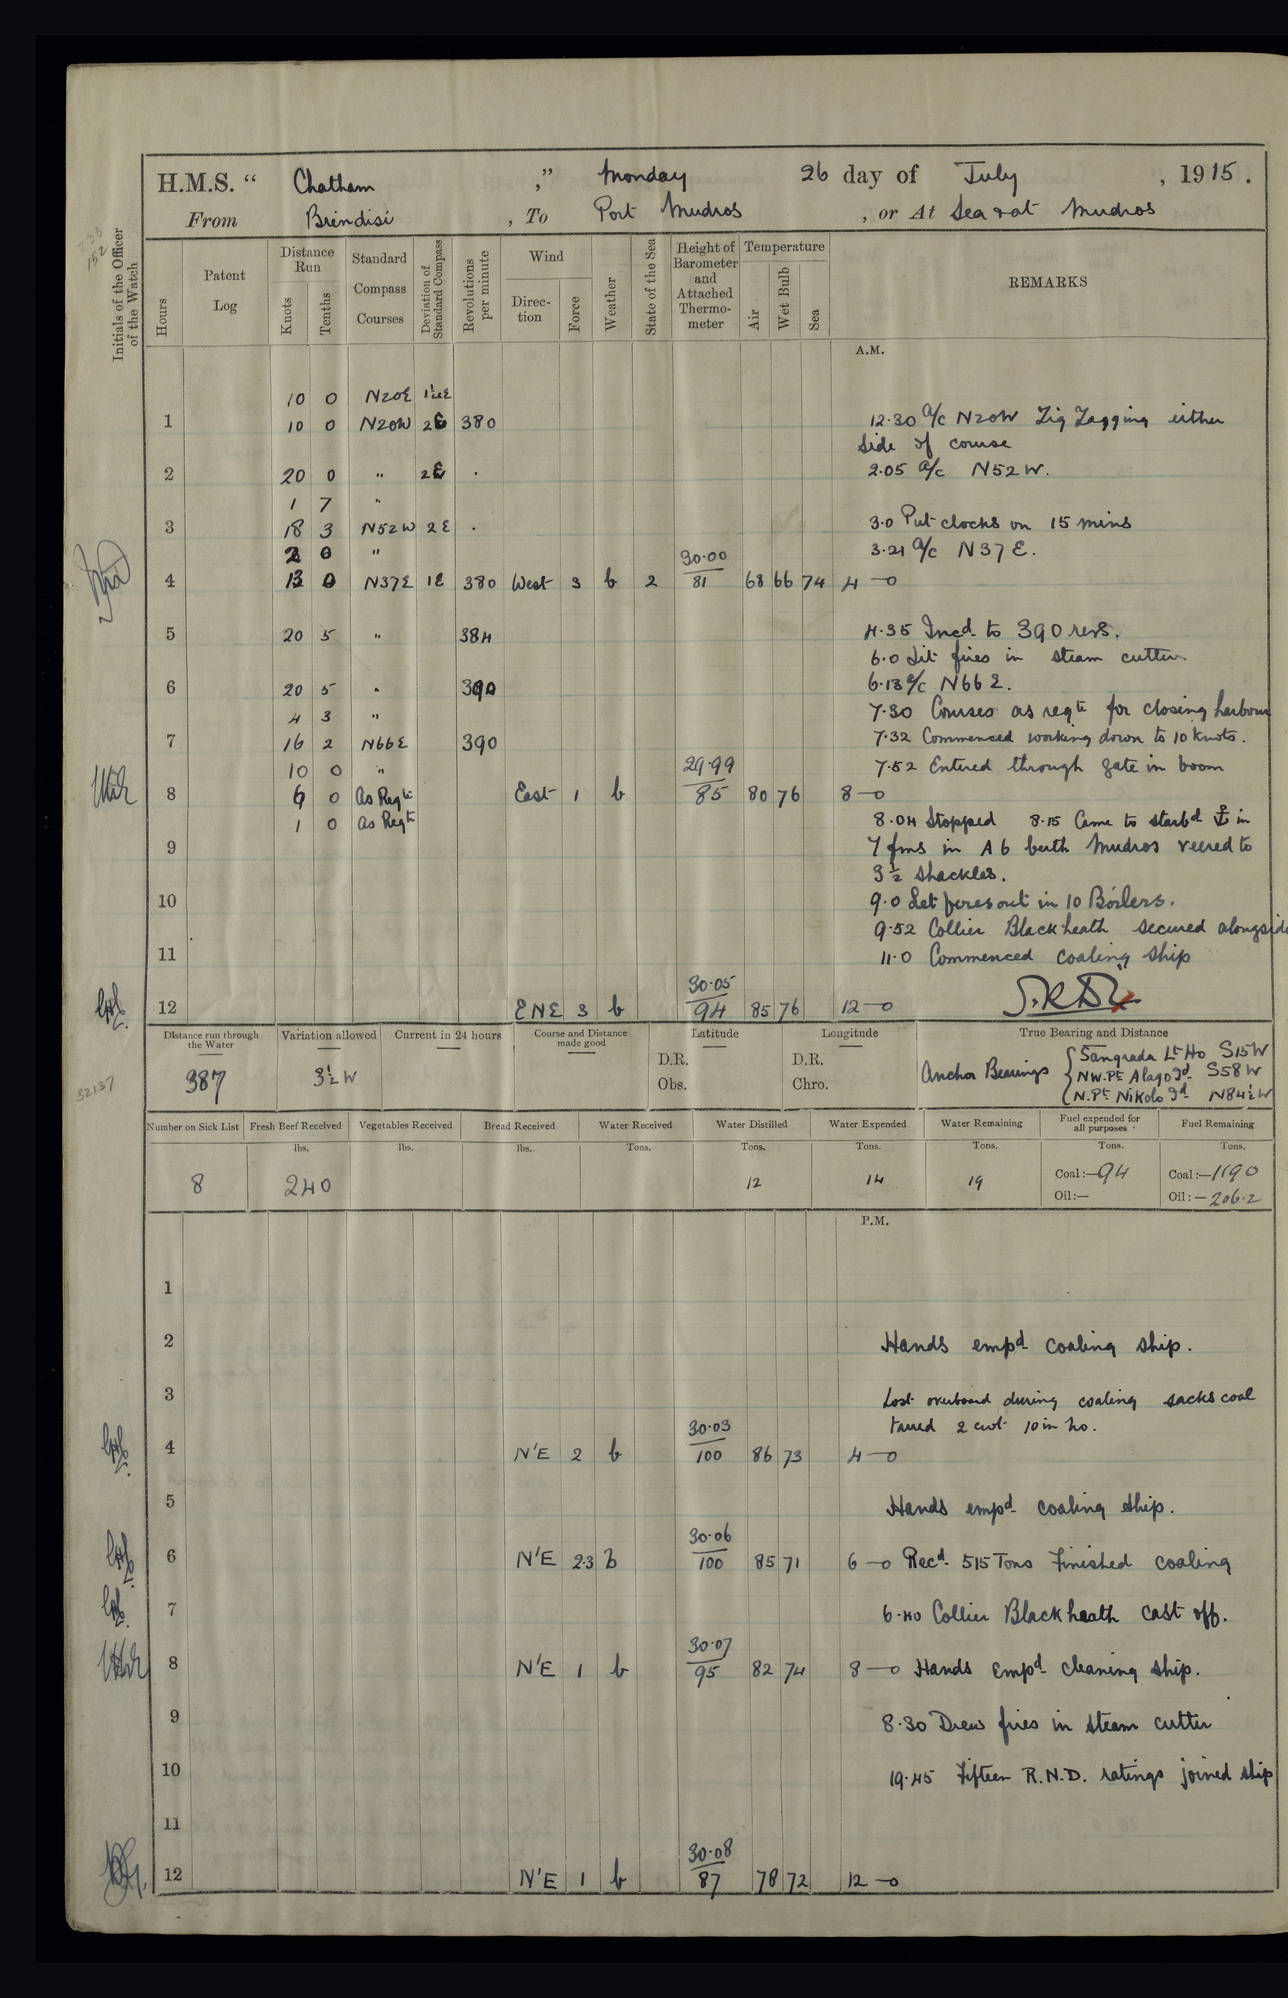 H.M.S. “ Chatham ,” Monday 26 day of July , 1915 .
From Brindisi , To Port Mudros , or At Sea & at Mudros
Initials of the Officer of the Watch
Hours
Patent Log
Distance Run
Knots
Tenths
Standard Compass Courses
Deviation of Standard Compass
Revolutions per minute
Wind
Direction
Force
Weather
State of the Sea
Height of Barometer and Attached Thermometer
Temperature
Air
Wet Bulb
Sea
REMARKS
A.M.
10 0 N20E 1½E
1 10 0 N20W 2E 380 12.30 a/c N20W Zig Zagging either
side of course
2 20 0 " 2E . 2.05 a/c N52W.
1 7 "
3 18 3 N52W 2E . 3.0 Put clocks on 15 mins
2 0 " 3.21 a/c N37E.
4 13 0 N37E 1E 380 West 3 b 2 30.00/81 68 66 74 4—0
5 20 5 " 384 4.35 Incd to 390 revs.
6.0 Lit fires in steam cutter
6 20 5 " 390 6.13 a/c N66E.
4 3 " 7.30 Courses as reqte for closing harbour
7 16 2 N66E 390 7.32 Commenced working down to 10 knots.
10 0 " 7.52 Entered through gate in boom
8 6 0 As Reqte East 1 b 29.99/85 80 76 8—0
1 0 As Reqte 8.04 Stopped 8.15 Came to starbd ⚓ in
9 7 fms in A6 berth Mudros veered to
3½ shackles.
10 9.0 Let fires out in 10 Boilers.
9.52 Collier Blackheath secured alongside
11 11.0 Commenced coaling ship
12 ENE 3 b 30.05/94 85 76 12—0
Distance run through the Water
387
Variation allowed
3½W
Current in 24 hours
Course and Distance made good
Latitude
D.R.
Obs.
Longitude
D.R.
Chro.
True Bearing and Distance
Anchor Bearings
Sangrada Lt Ho S15W
NW.Pt Alago Id S58W
N.Pt Nikolo Id N84½W
32137
Number on Sick List
8
Fresh Beef Received
lbs.
240
Vegetables Received
lbs.
Bread Received
lbs.
Water Received
Tons.
Water Distilled
Tons.
12
Water Expended
Tons.
14
Water Remaining
Tons.
19
Fuel expended for all purposes
Tons.
Coal:—94
Oil:—
Fuel Remaining
Tons.
Coal:—1190
Oil:—206.2
P.M.
1
2 Hands empd coaling ship.
3 Lost overboard during coaling sacks coal
tarred 2 cwt 10 in No.
4 N'E 2 b 30.03/100 86 73 4—0
5 Hands empd coaling ship.
6 N'E 2.3 b 30.06/100 85 71 6—0 Recd 515 Tons Finished coaling
7 6.40 Collier Blackheath cast off.
8 N'E 1 b 30.07/95 82 74 8—0 Hands empd cleaning ship.
9 8.30 Drew fires in steam cutter
10 19.45 Fifteen R.N.D. ratings joined ship
11
12 N'E 1 b 30.08/87 78 72 12—0